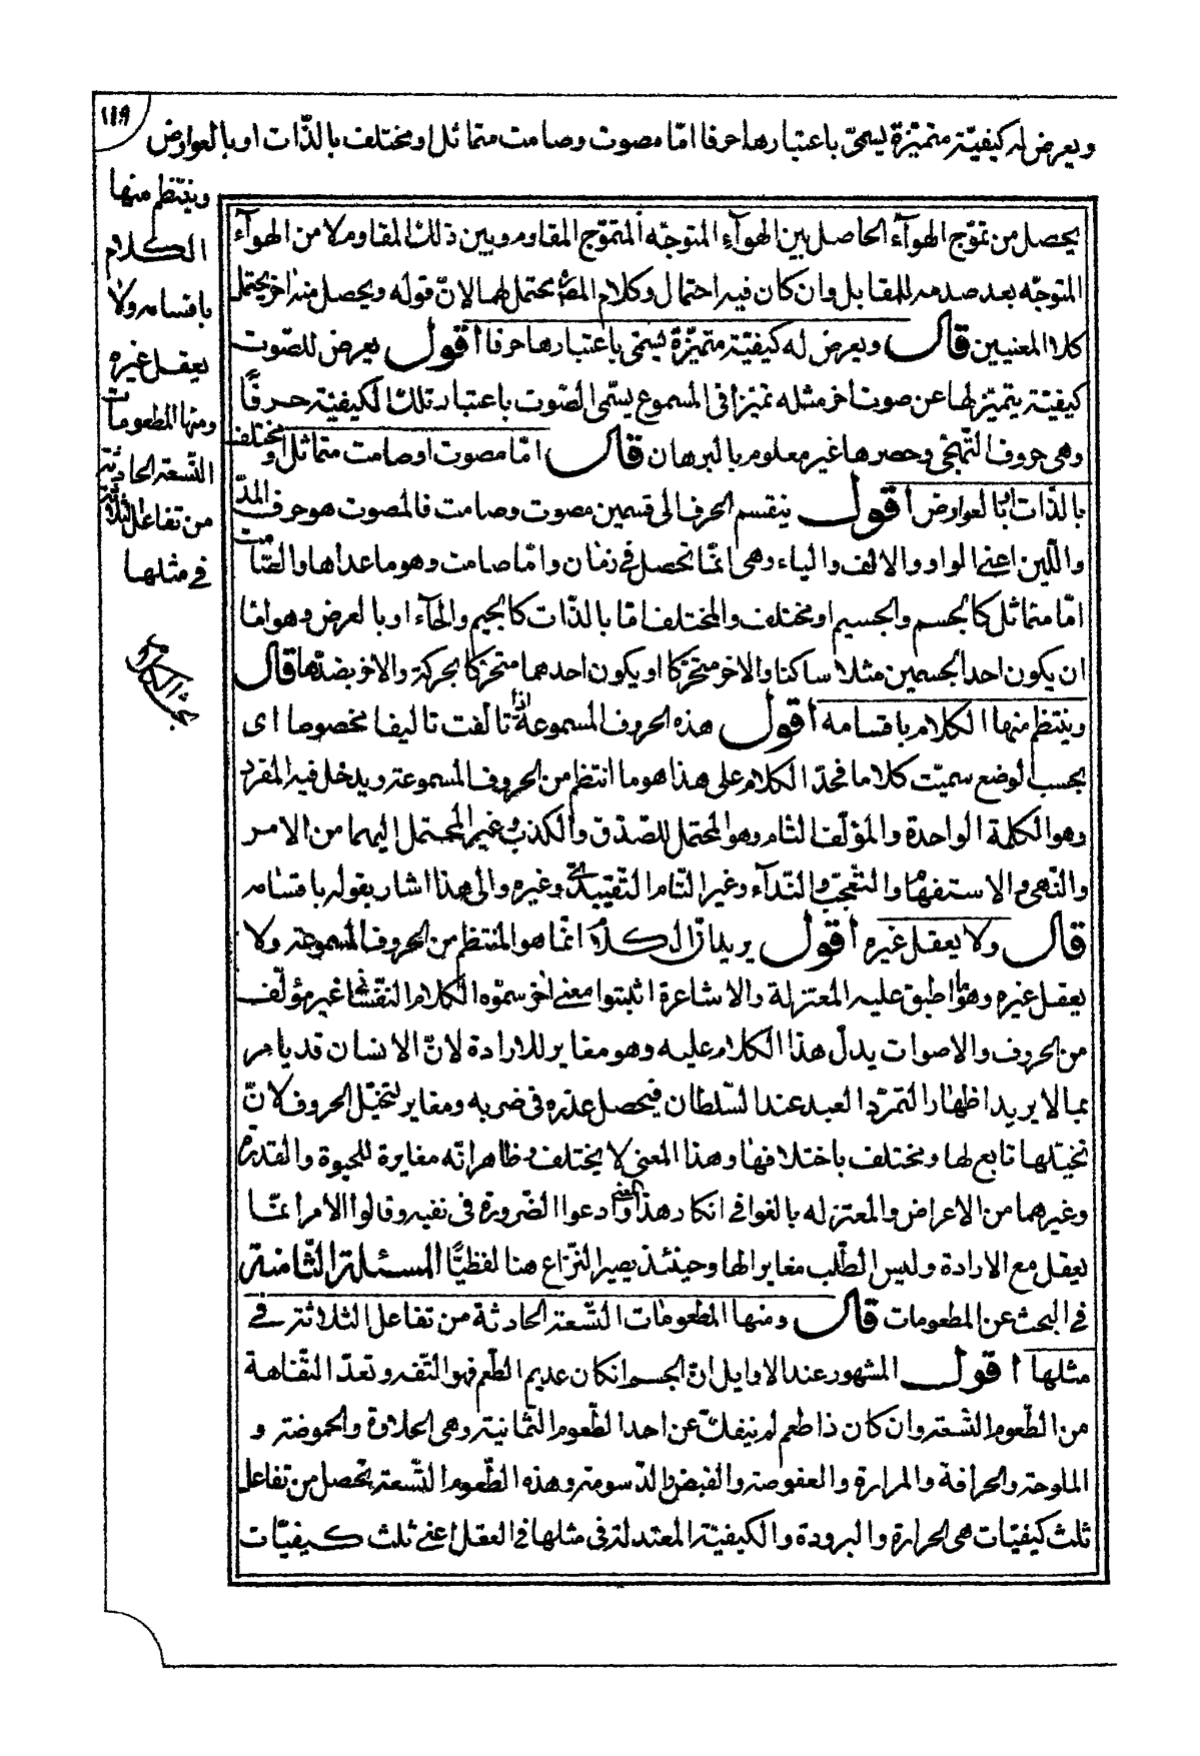 ١١٩
ويعرض له كيفيّة متميّزة يسمّى باعتبارها حرفا امّا مصوت وصامت متماثل او مختلف بالذّات او بالعوارض
وينتظم منها
الكلام
باقسامه ولا
يعقل غيره
ومنها المطعومات
التّسعة الحادثة
من تفاعل الثلاثة
في مثلها
يحصل من تموّج الهوآء الحاصل بين الهوآء المتوجّه المتموّج المقاوم وبين ذلك المقاوم لا من الهوآء
المتوجّه بعد صدمه للمقابل وان كان فيه احتمال وكلام المصنّف يحتمل لهما لانّ قوله ويحصل منه اخر يحتمل
كلا المعنيين قال ويعرض له كيفيّة متميّزة يسمّى باعتبارها حرفا اقول يعرض للصّوت
كيفيّة يتميّز لها عن صوت اخر مثله تميّزا في المسموع يسمّى الصّوت باعتبار تلك الكيفيّة حرفًا
وهي حروف التّهجّي وحصرها غير معلوم بالبرهان قال امّا مصوت او صامت متماثل او مختلف
بالذّات او بالعوارض اقول ينقسم الحرف الى قسمين مصوت وصامت فالمصوت هو حرف المدّ
واللّين اعني الواو والالف والياء وهي انّما تحصل في زمان وامّا صامت وهو ما عداها والصّامت
امّا متماثل كالجسم والجسيم او مختلف والمختلف امّا بالذّات كالجيم والحآء او بالعرض وهو امّا
ان يكون احد الجسمين مثلا ساكنا والاخر متحرّكا او يكون احدهما متحرّكا بحركة والاخر بضدّها قال
وينتظم منها الكلام باقسامه اقول هذه الحروف المسموعة اذا تالّفت تاليفا مخصوصا اى
بحسب الوضع سميّت كلاما فحدّ الكلام على هذا هو ما انتظم من الحروف المسموعة ويدخل فيه المفرد
وهو الكلمة الواحدة والمؤلّف التام وهو المحتمل للصّدق والكذب وغير المحتمل اليهما من الامر
والنّهي والاستفهام والتعجّب والنّدآء وغير التّام التّقييدى وغيره والى هذا اشار بقوله باقسامه
قال ولا يعقل غيره اقول يريد انّ الكلام انّما هو المنتظم من الحروف المسموعة ولا
يعقل غيره وهو ما اطبق عليه المعتزلة والاشاعرة اثبتوا معنى اخر سمّوه الكلام النّفسانى غير مؤلّف
من الحروف والاصوات يدلّ هذا الكلام عليه وهو مغاير للارادة لانّ الانسان قد يامر
بما لا يريد اظهارا لتمرّد العبد عند السّلطان فيحصل عذره في ضربه ومغاير لتخيّل الحروف لانّ
تخيّلها تابع لها ومختلف باختلافها وهذا المعنى لا يختلف وظاهر انّه مغايرة للحيوة والقدرة
وغيرهما من الاعراض والمعتزله بالغوا في انكار هذا المعنى وادعوا الضّرورة في نفيه وقالوا الامر انّما
يعقل مع الارادة وليس الطّلب مغايرا لها وحينئذ يصير النّزاع هنا لفظيًّا المسئلة الثّامنة
في البحث عن المطعومات قال ومنها المطعومات التّسعة الحادثة من تفاعل الثلاثة في
مثلها اقول المشهور عند الاوايل انّ الجسم ان كان عديم الطّعم فهو التّفه وتعدّ التّفاهة
من الطّعوم التّسعة وان كان ذا طعم لم ينفكّ عن احد الطّعوم الثّمانية وهي الحلاوة والحموضة و
الملوحة والحرافة والمرارة والعفوصة والقبض والدّسومة وهذه الطّعوم التّسعة تحصل من تفاعل
ثلث كيفيّات هي الحرارة والبرودة والكيفيّة المعتدلة في مثلها في العقل اعني ثلث كيفيّات